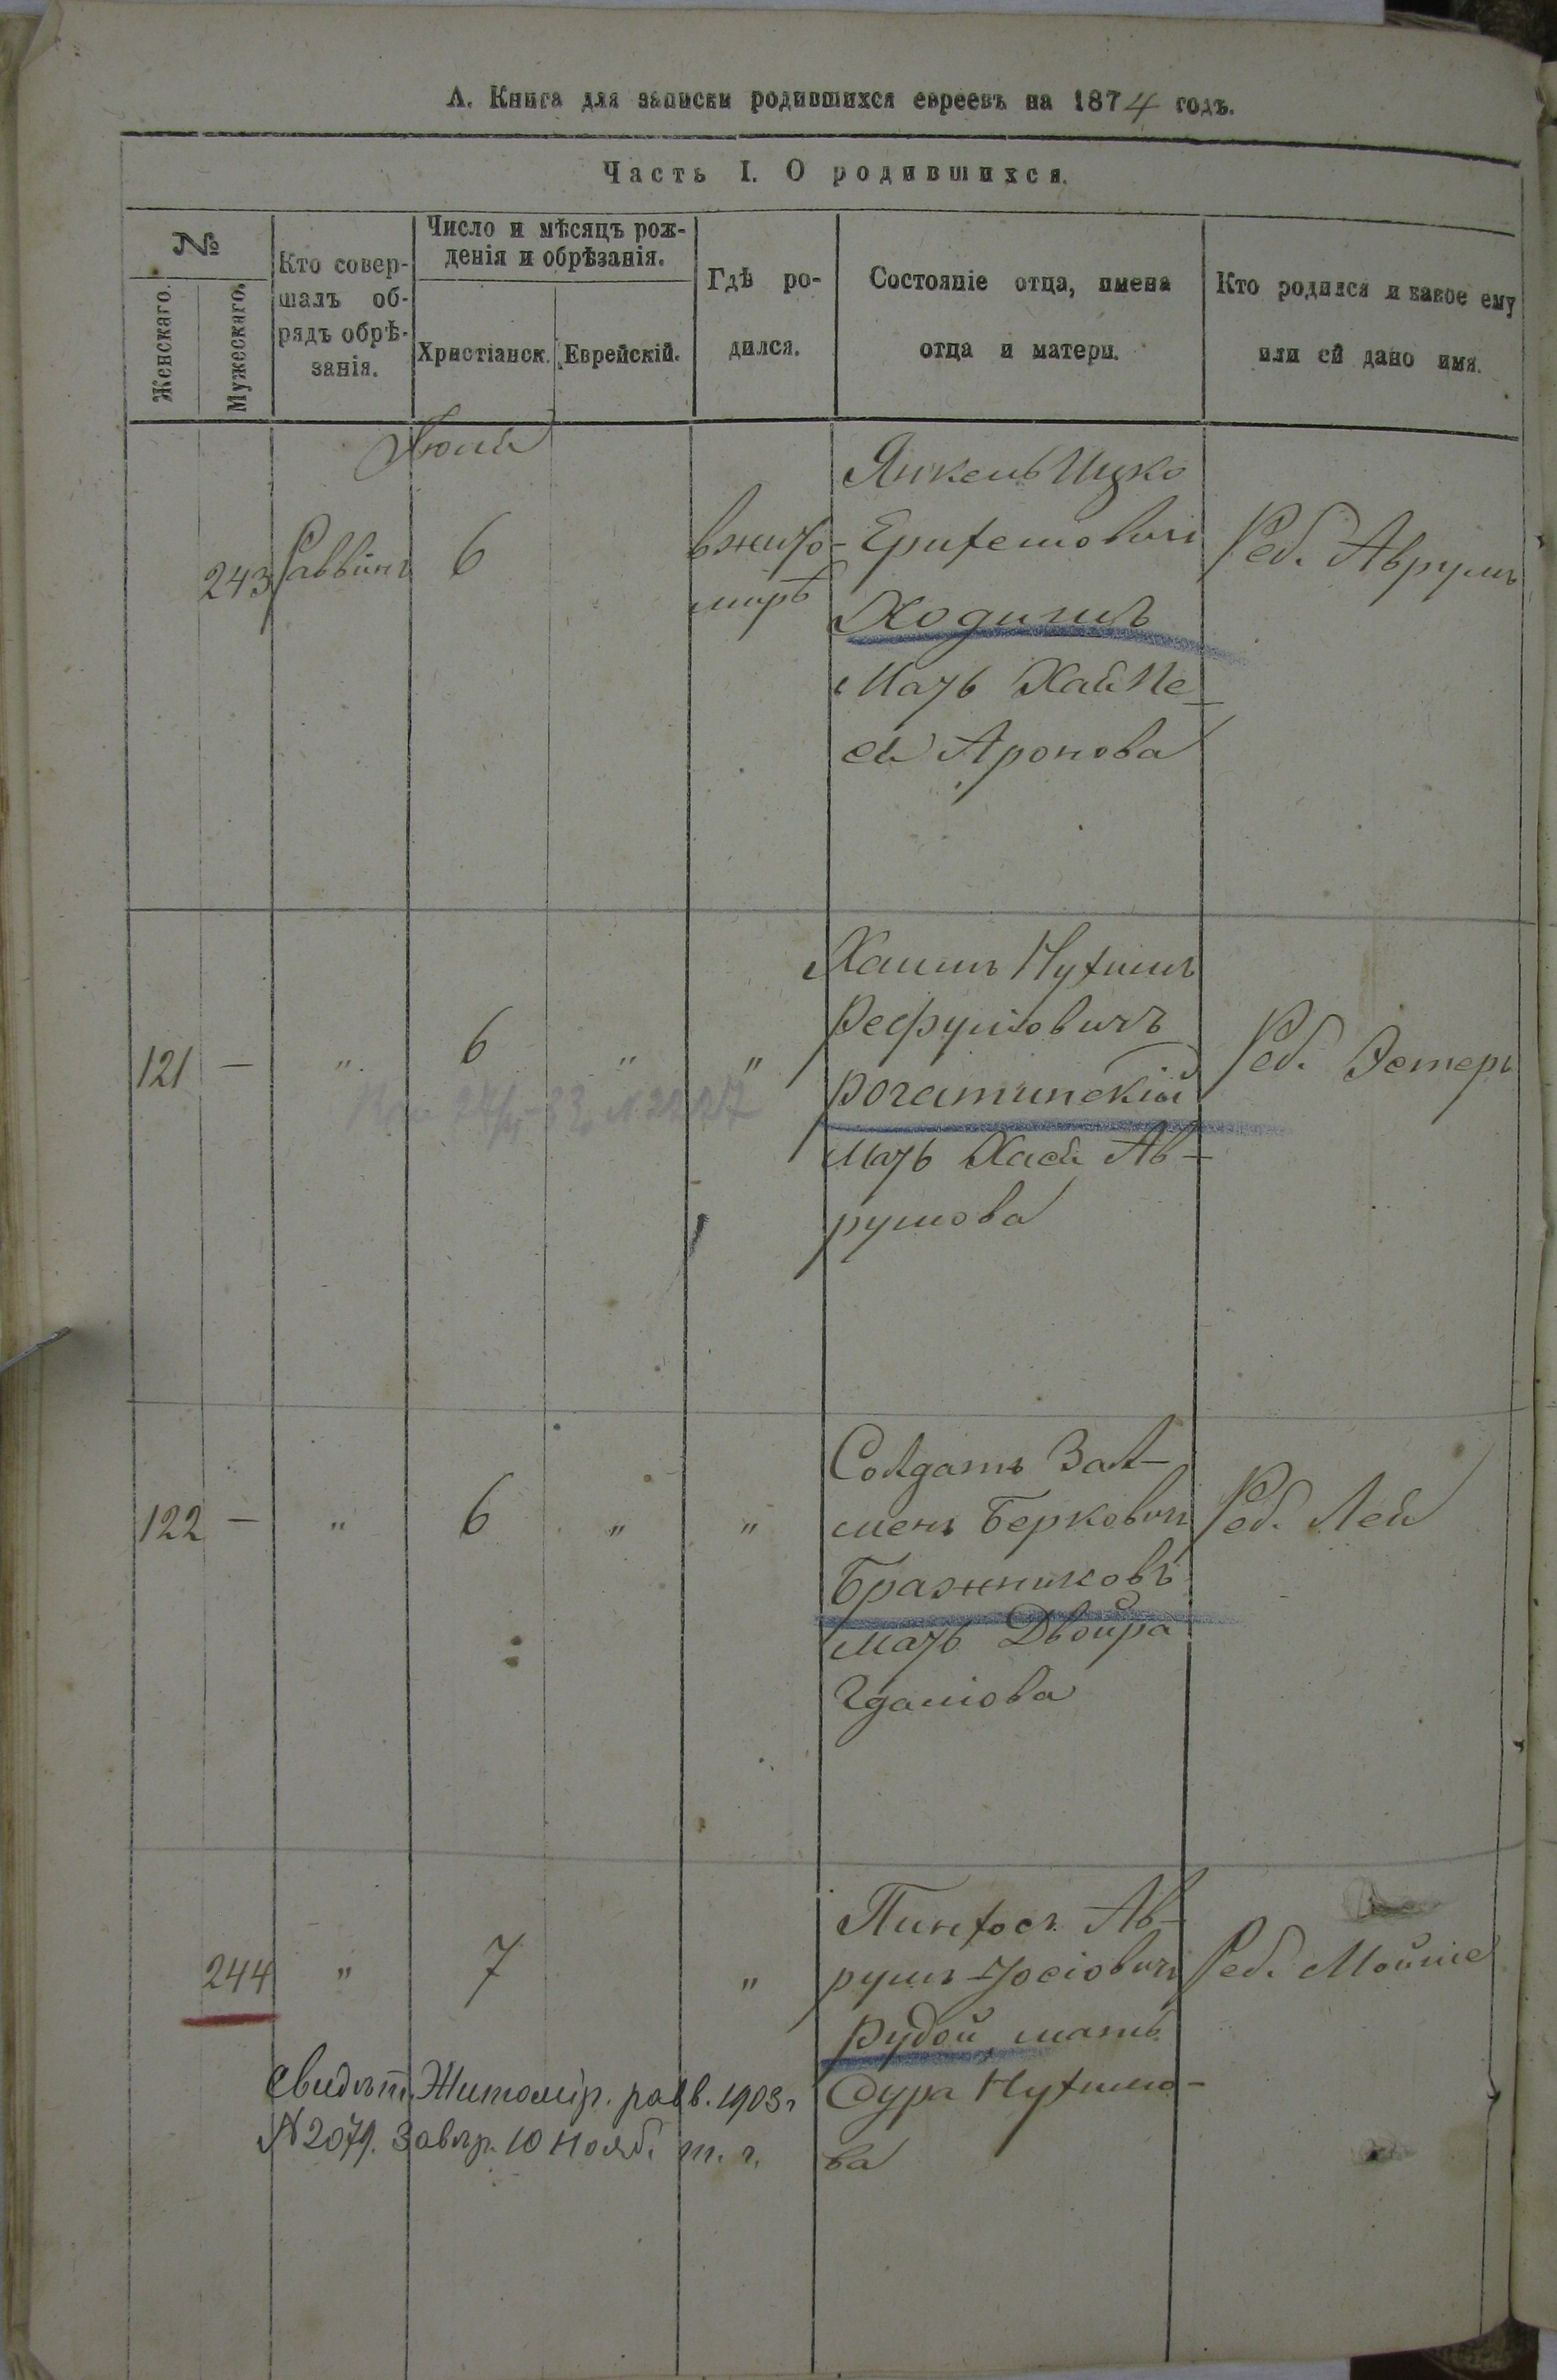 А. Книга для записки родившихся евреевъ на 1874 годъ.
Часть I. О родившихся.
№
Женскаго.
Мужескаго.
Кто совер-
шалъ об-
рядъ обрѣ-
занія.
Число и мѣсяцъ рож-
денія и обрѣзанія.
Христіанск.
Еврейскій.
Гдѣ ро-
дился.
Состояніе отца, имена
отца и матери.
Кто родился и какое ему
или ей дано имя.
243
Раввинъ
6
в Жито-
мирѣ
Янкель Ицко
Мать Хая Пе-
ся Аронова
Реб. Аврумъ
121 — " 6 " "
Хаимъ Нухимъ
Рогатинскій
мать Хася Ав-
румова
Реб. Эстеръ
122 — " 6 " "
Солдатъ Зал-
менъ Берковичъ
Бражниковъ
мать Двойра
Реб. Лея
244 " 7 "
Пинхосъ Ав-
румъ Іосіовичъ
Рудой, мать
Сура Нухимо-
ва
Реб. Мойше
Свидѣт. Житомір. равв. 1903 г
№ 2079. Завѣр. 10 Нояб. т. г.